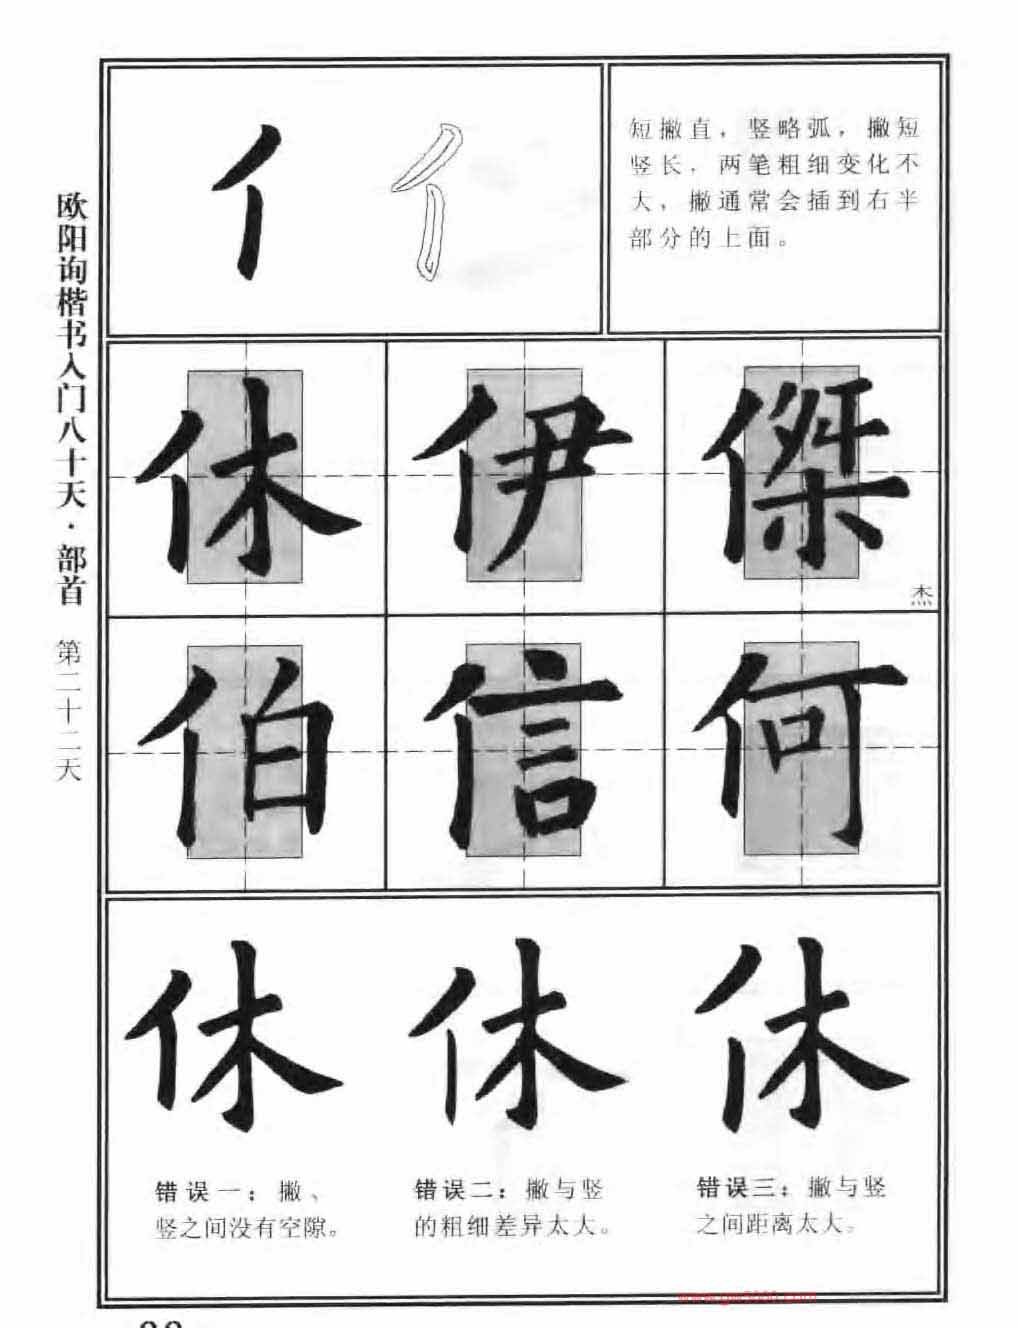 欧阳询楷书入门八十天·部首 第二十二天
亻 亻
短撇直，竖略弧，撇短
竖长，两笔粗细变化不
大，撇通常会插到右半
部分的上面。
休 伊 傑
杰
伯 信 何
休 休 休
错误一：撇、
竖之间没有空隙。
错误二：撇与竖
的粗细差异太大。
错误三：撇与竖
之间距离太大。